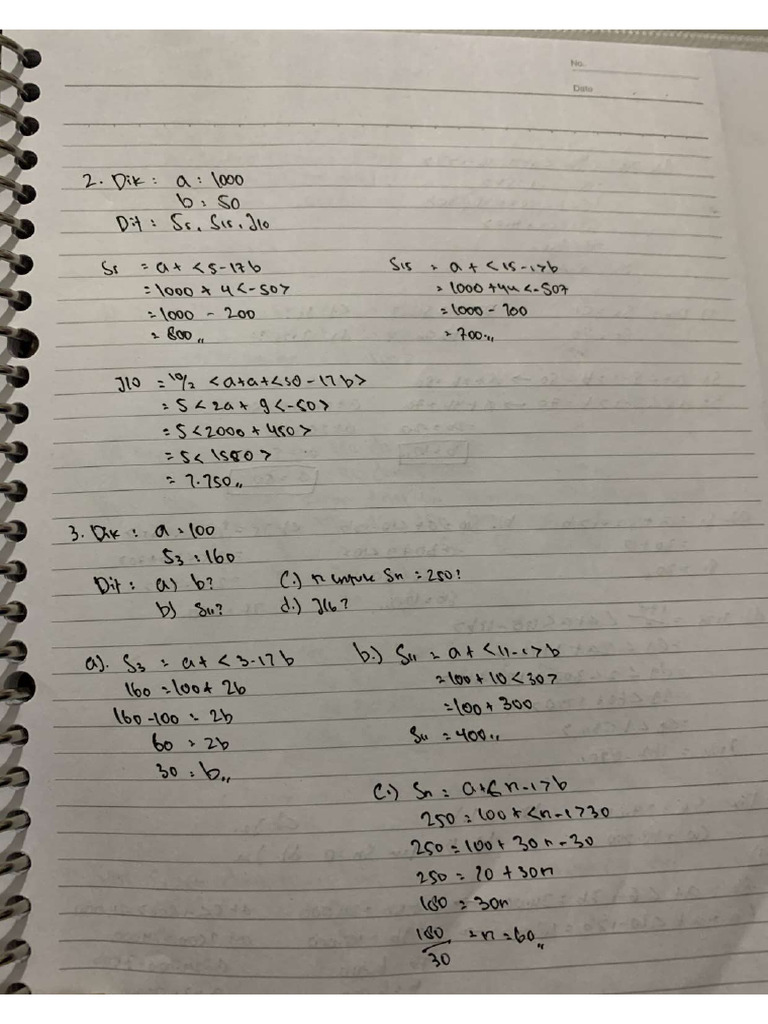 No.
Date
2. Dik : a : 1000
b : 50
Dit : S5, S15, J10
S5 = a + <5-1>b
= 1000 + 4 <-50>
= 1000 - 200
= 800,,
S15 = a + <15-1>b
= 1000 + 14 <-50>
= 1000 - 700
= 700.,,
J10 = 10/2 <a+a+<10-1>b>
= 5 <2a + 9 <-50>
= 5 <2000 + 450>
= 5 < 1550 >
= 7.750,,
3. Dik : a = 100
S3 = 160
Dit : a) b? C.) n untuk Sn = 250?
b) S11? d.) J16?
a). S3 = a + <3-1>b
160 = 100 + 2b
160-100 = 2b
60 = 2b
30 = b,,
b.) S11 = a + <11-1>b
= 100 + 10 <30>
= 100 + 300
S11 = 400,,
C.) Sn = a + <n-1>b
250 = 100 + <n-1>30
250 = 100 + 30n - 30
250 = 70 + 30n
180 = 30n
180/30 = n = 60,,